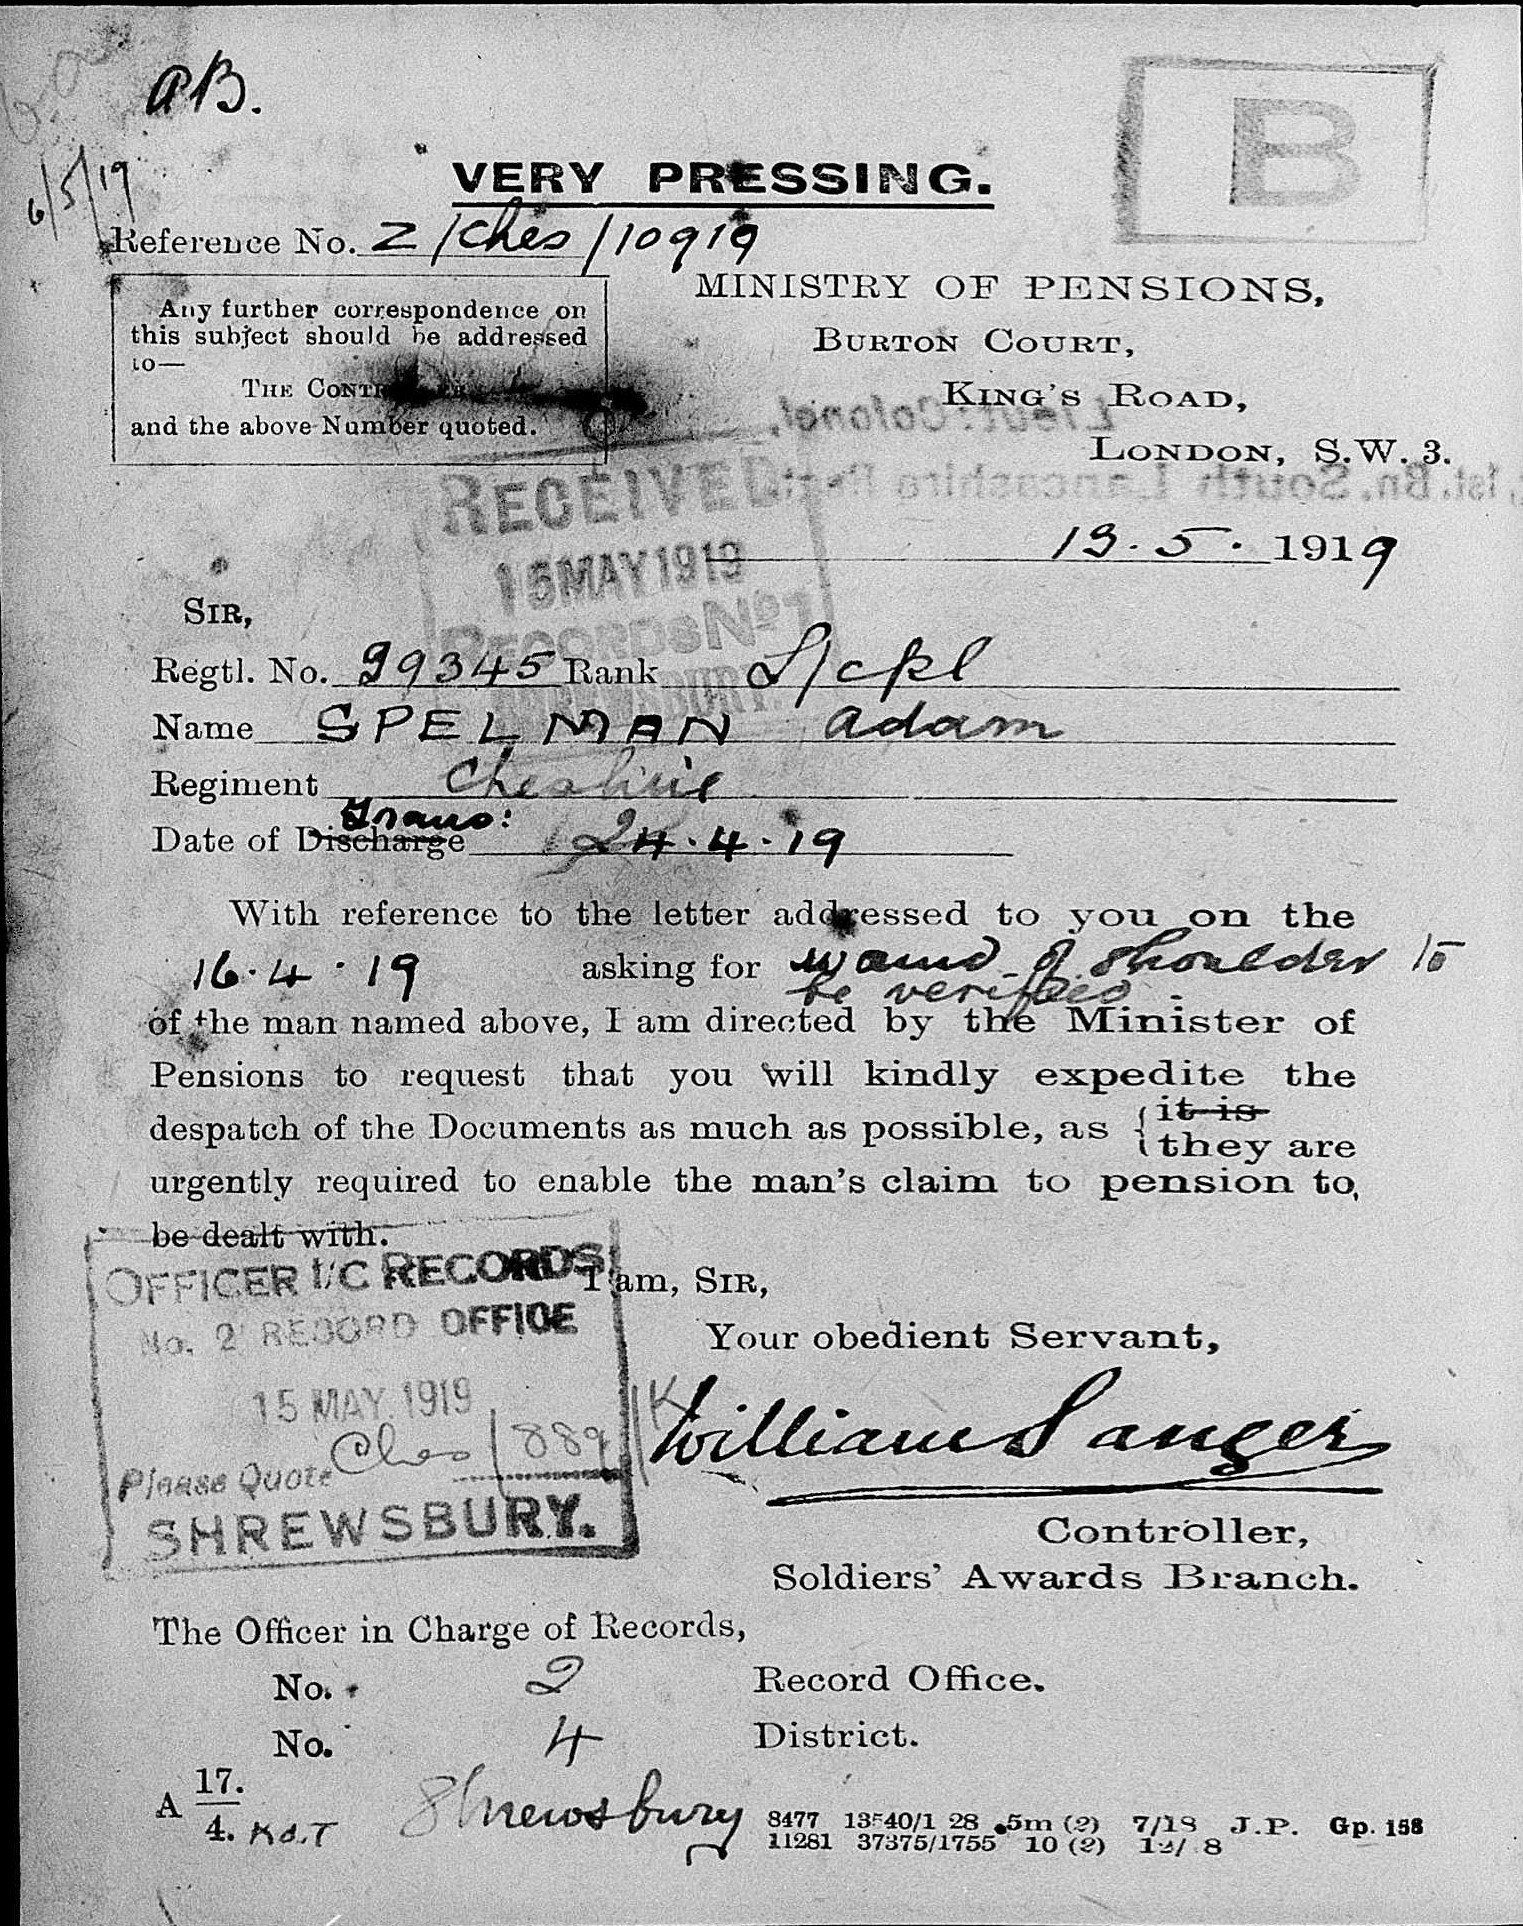 AB.
B
6/5/19
VERY PRESSING.
Reference No. Z/Ches/10919
Any further correspondence on
this subject should be addressed
to—
THE
and the above Number quoted.
MINISTRY OF PENSIONS,
BURTON COURT,
KING'S ROAD,
LONDON, S.W. 3.
Lieut: Colonel,
1st. Bn. South Lancashire
RECEIVED
15 MAY 1919
RECORDS No 1
13.5.1919
SIR,
Regtl. No. 99345 Rank L/cpl
Name SPELMAN Adam
Regiment Cheshire
Trans:
Date of Discharge 24.4.19
With reference to the letter addressed to you on the
16.4.19 asking for wound of shoulder to
be verified
of the man named above, I am directed by the Minister of
Pensions to request that you will kindly expedite the
despatch of the Documents as much as possible, as { it is
they are
urgently required to enable the man's claim to pension to,
be dealt with.
I am, SIR,
Your obedient Servant,
William Sanger
Controller,
Soldiers' Awards Branch.
OFFICER I/C RECORDS
No. 2 RECORD OFFICE
15 MAY 1919
Please Quote Ches/889/K
SHREWSBURY.
The Officer in Charge of Records,
No. 2 Record Office.
No. 4 District.
Shrewsbury
A 17.
4.
8477 13540/1 28 5m (2) 7/18 J.P. Gp. 158
11281 37375/1755 10 (2)